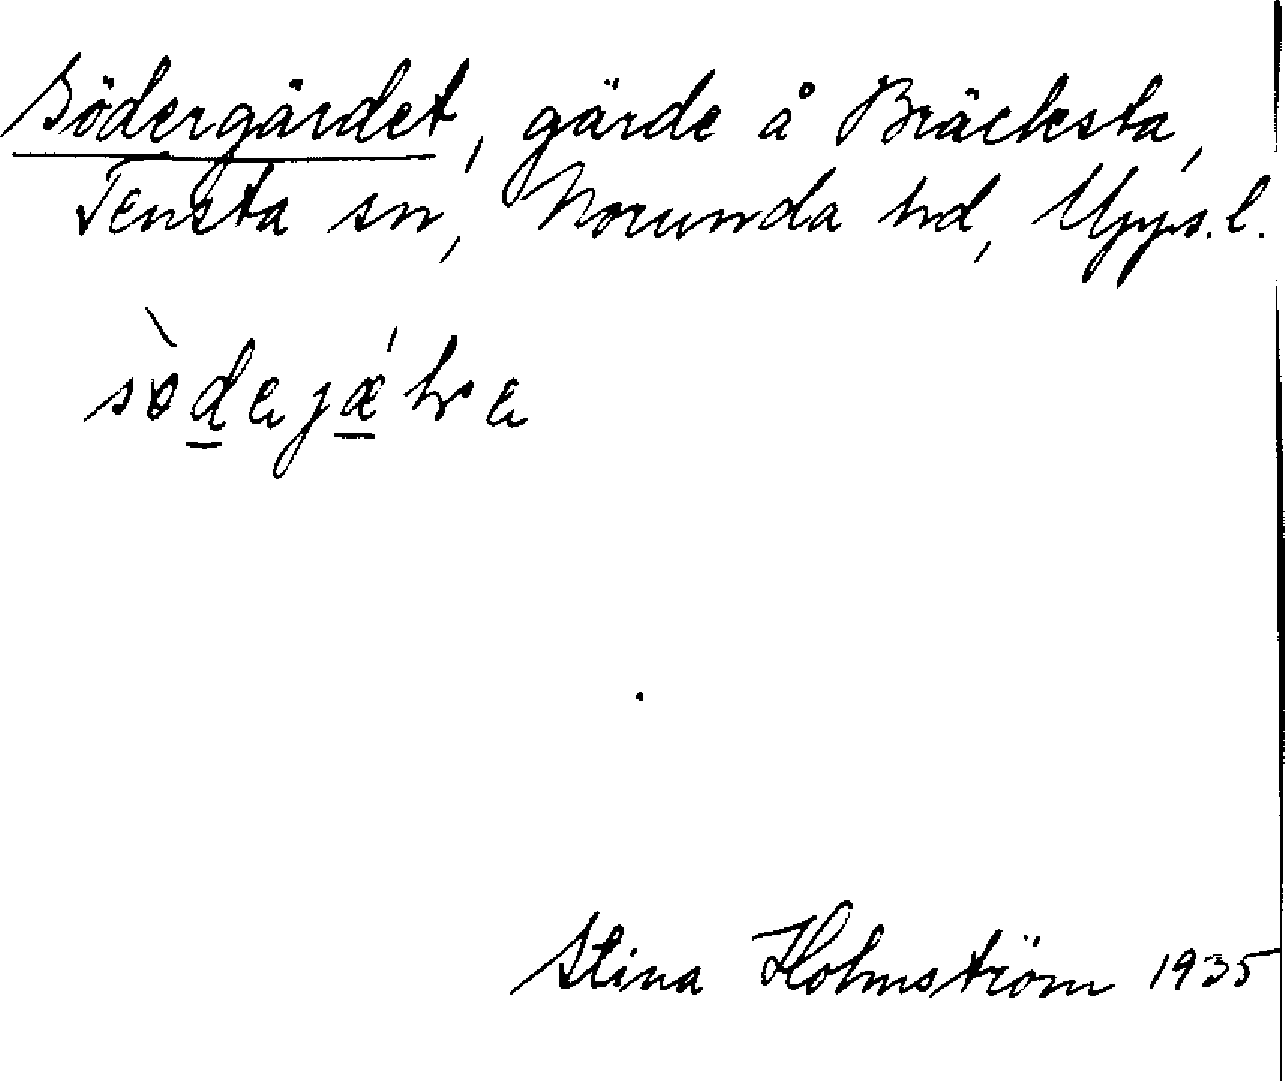 Södergärdet, gärde å Bräcksta,
Tensta sn, Norunda hd, Upps. l.
Stina Holmström 1935